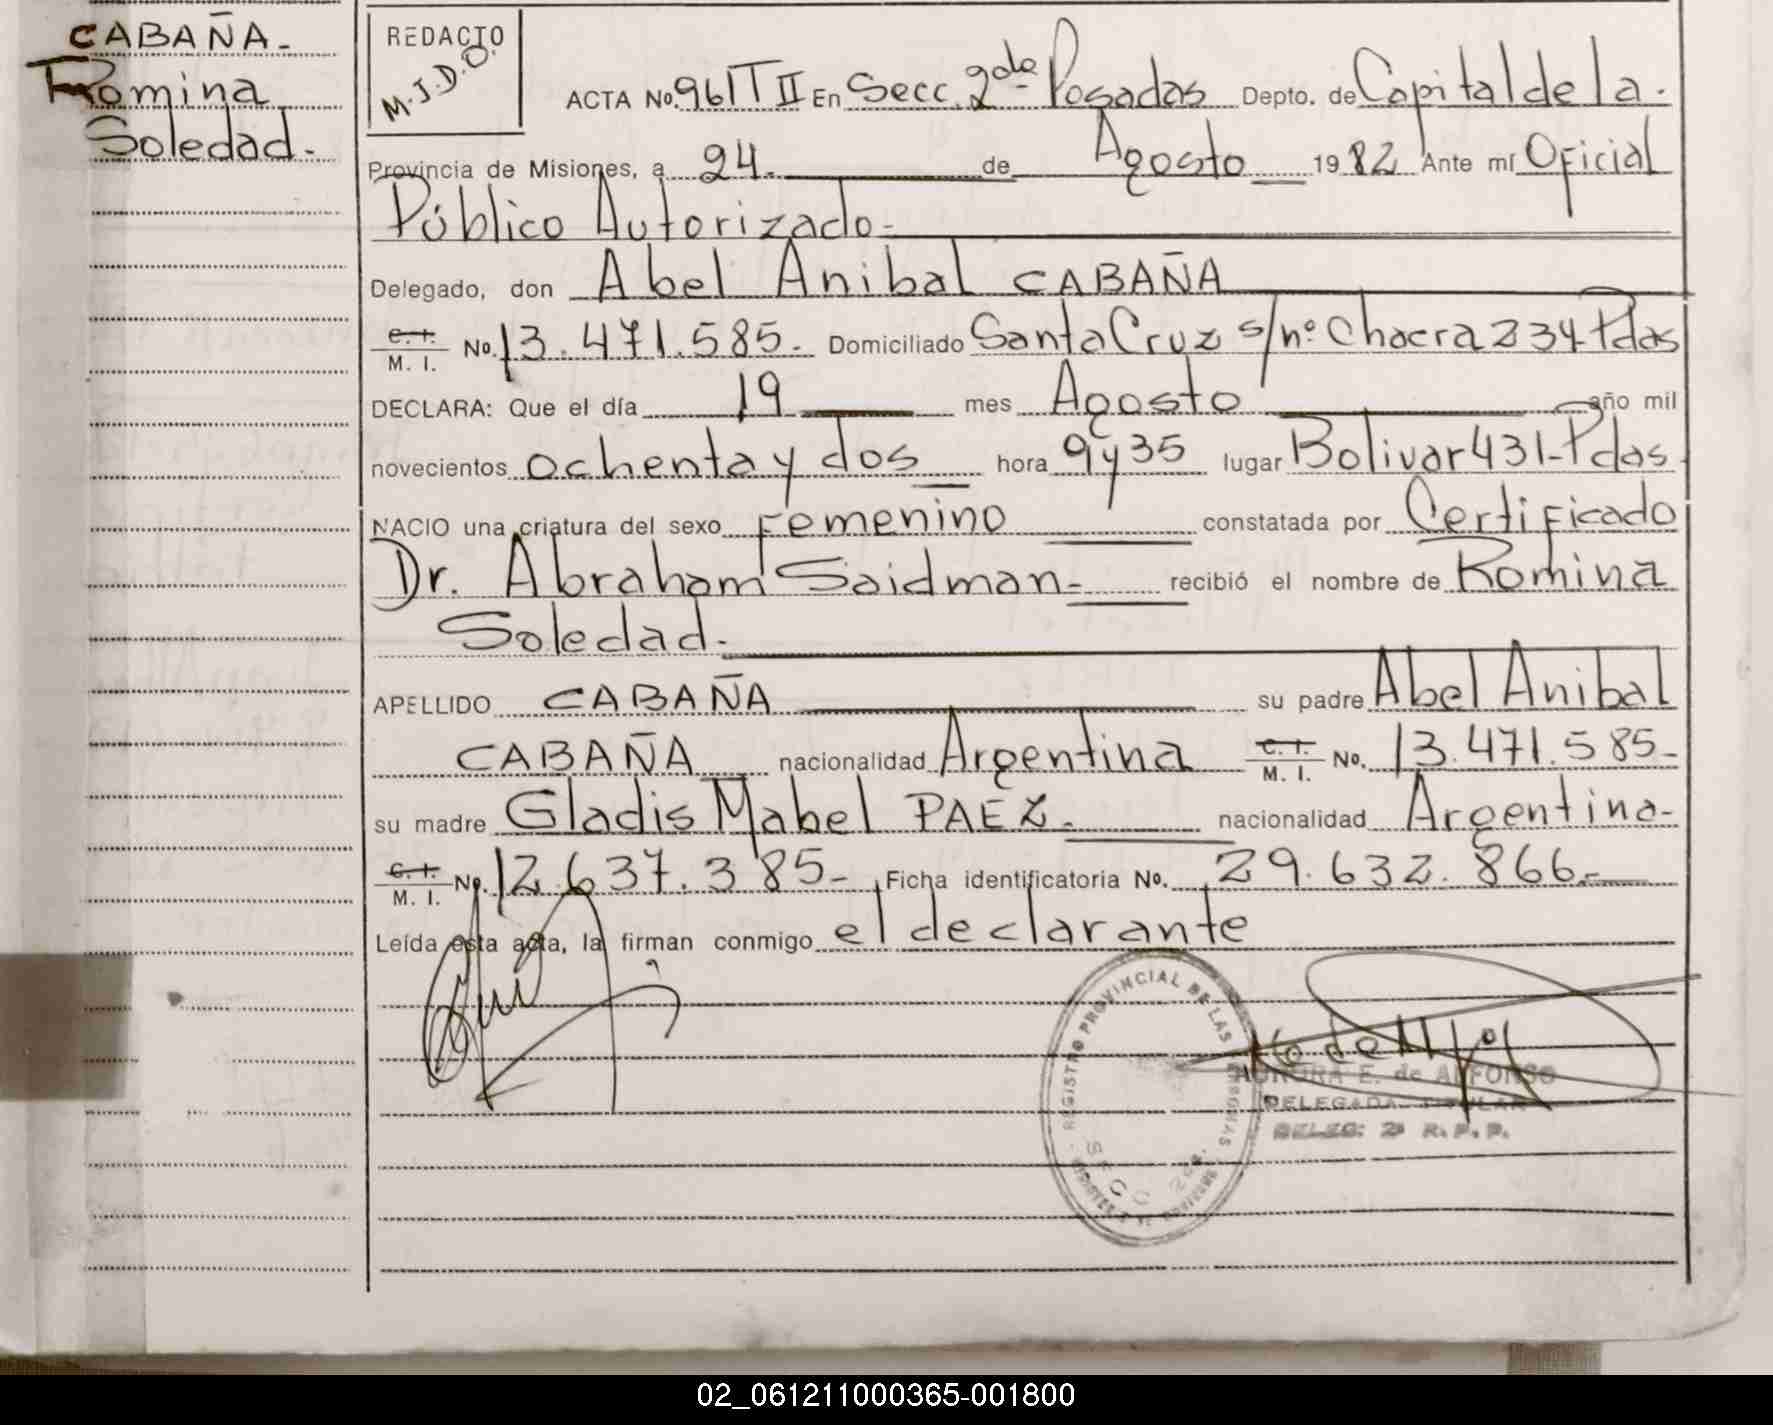 CABAÑA-
Romina
Soledad.
REDACTO
M.J.D.O.
ACTA No. 961 T II En Secc. 2da Posadas Depto. de Capital de la.
Provincia de Misiones, a 24. de Agosto 1982 Ante mí Oficial
Público Autorizado-
Delegado, don Abel Anibal CABAÑA
C. I. M. I. No. 13.471.585- Domiciliado Santa Cruz s/nº Chacra 234 Pdas
DECLARA: Que el día 19 mes Agosto año mil
novecientos ochenta y dos hora 9 y 35 lugar Bolivar 431-Pdas.
NACIO una criatura del sexo Femenino constatada por Certificado
Dr. Abraham Saidman- recibió el nombre de Romina
Soledad.
APELLIDO CABAÑA su padre Abel Anibal
CABAÑA nacionalidad Argentina C. I. M. I. No. 13.471.585-
su madre Gladis Mabel PAEZ. nacionalidad Argentina-
C. I. M. I. No. 12.637.385- Ficha identificatoria No. 29.632.866.-
Leída esta acta, la firman conmigo el declarante
REGISTRO PROVINCIAL DE LAS PERSONAS
SECC 2da.
AURORA E. de ALFONSO
DELEGADA TITULAR
DELEG: 2ª R. P. P.
02_061211000365-001800